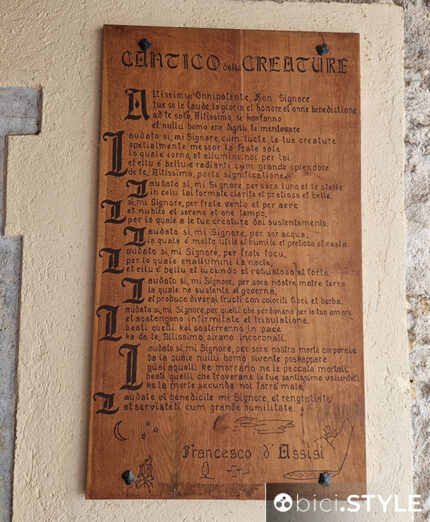 CANTICO delle CREATURE
Altissimu, Onnipotente, Bon Signore
tue so le laude, la gloria el honore el onne benedictione
ad te solo, Altissimo, se konfanno
et nullu homo ene dignu te mentovare
Laudato si, mi Signore, cum tucte le tue creature
spetialmente messor lo frate sole
lo quale iorno, et allumini noi per loi
et ellu è bellu e radiante cum grande splendore
de te, Altissimo, porta significatione
Laudato si, mi Signore, per sora luna et le stelle
in celu l'ai formate clarite et pretiose et belle.
Laudato si, mi Signore, per frate vento et per aere
et nubilo et sereno et onne tempo,
per lo quale a le tue creature dai sustentamento.
Laudato si, mi Signore, per sor acqua,
la quale è molto utile et humile et pretiosa et casta.
Laudato si, mi Signore, per frate focu,
per lo quale enallumini la nocte,
et ellu è bellu et iucundo et robustoso et forte.
Laudato si, mi Signore, per sora nostra matre terra
la quale ne sustenta et governa,
et produce diversi fructi con coloriti fiori et herba.
Laudato si, mi Signore, per quelli che perdonano per lo tuo amore
et sostengono infirmitate et tribulatione.
beati quelli kel sosterranno in pace
ka da te, Altissimo, sirano incoronati.
Laudato si, mi Signore, per sora nostra morte corporale
da la quale nullu homo vivente po skappare
guai a quelli ke morrano ne le peccata mortali;
beati quelli che troverane le tue santissime voluntati
ka la morte secunda nol farrà male.
Laudate et benedicite mi Signore, et rengratiate
et serviateli cum grande humilitate.
Francesco d'Assisi
bici.STYLE